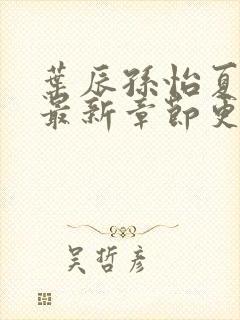 葉辰孫怡夏
最新章節更
吴哲彦